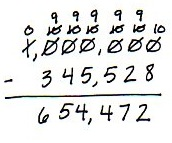 9 9 9 9 9
0 10 10 10 10 10 10
1,000,000
- 345,528
654,472